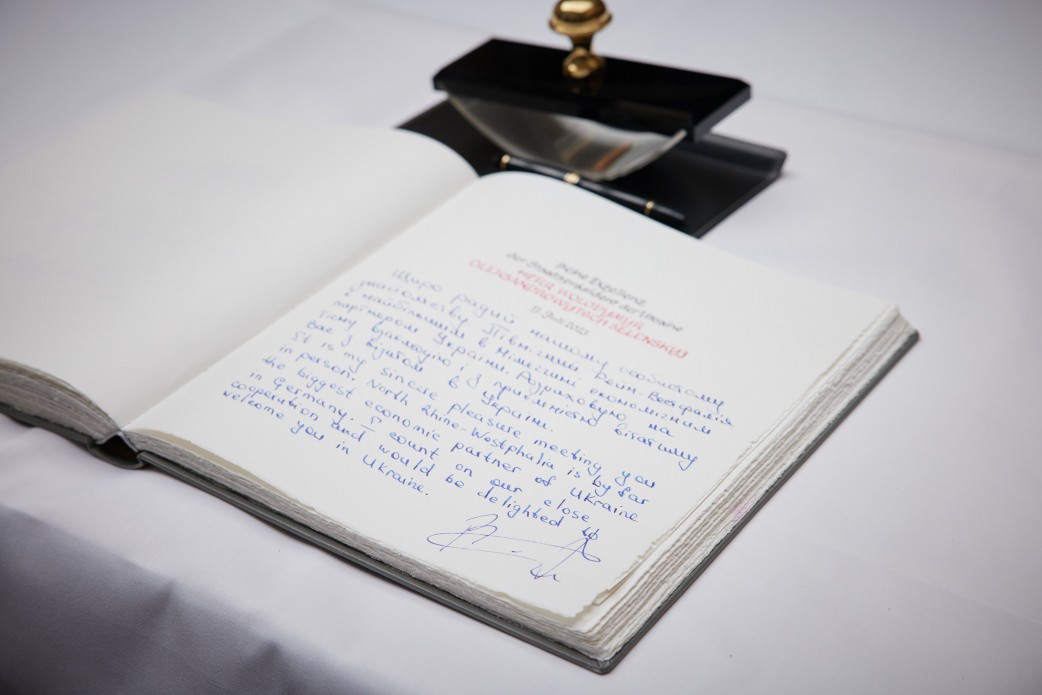 Seine Exzellenz
der Staatspräsident der Ukraine
HERR WOLODYMYR
OLEKSANDROWYTSCH SELENSKYJ
Щиро радий нашому особистому
знайомству. Північний Рейн-Вестфалія
є найбільшим в Німеччині економічним
партнером України. Розраховую на
тісну і з приємністю вітатиму
Вас з візитом в Україні.
It is my sincere pleasure meeting you
in person. North Rhine-Westphalia is by far
the biggest economic partner of Ukraine
in Germany. I count on our close
cooperation and I would be delighted to
welcome you in Ukraine.